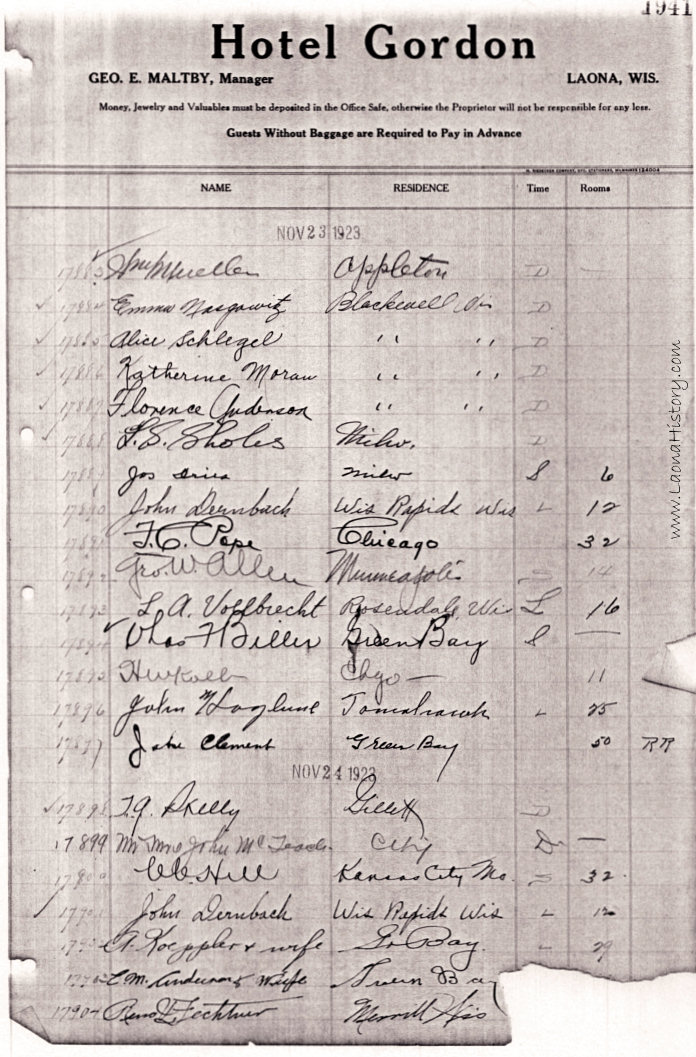 1941
Hotel Gordon
GEO. E. MALTBY, Manager LAONA, WIS.
Money, Jewelry and Valuables must be deposited in the Office Safe, otherwise the Proprietor will not be responsible for any loss.
Guests Without Baggage are Required to Pay in Advance
NAME RESIDENCE Time Rooms
NOV 23 1923
17883 Wm Mueller Appleton D —
17884 Emma Blackwell Wis D
17885 Alice Schlegel " " D
17886 Katherine Moran " " D
17887 Florence Anderson " " D
17888 L.S. Sholes Milw. D
17889 Jos Milw S 6
17890 John Dernbach Wis Rapids Wis L 12
17891 F.C. Pope Chicago 32
17892 Geo. W. Allen Minneapolis S 14
17893 L. A. Vollbrecht Rosendale, Wis L 16
17894 Chas F Biller Green Bay S —
17895 Chgo — 11
17896 John Tomahawk L 25
17897 Jake Clement Green Bay 50 RR
NOV 24 1923
17898 Skelly Gillett D
17899 Mr Mrs John City D —
17900 Hill Kansas City Mo. S 32
17901 John Dernbach Wis Rapids Wis L 12
A. Koeppler & wife Gr Bay. L 29
Anderson & Wife Green Bay
17904 Fechtner Merrill Wis
www.LaonaHistory.com